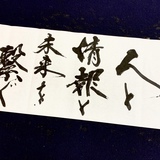 人と
情報と
未来を
繋ぐ